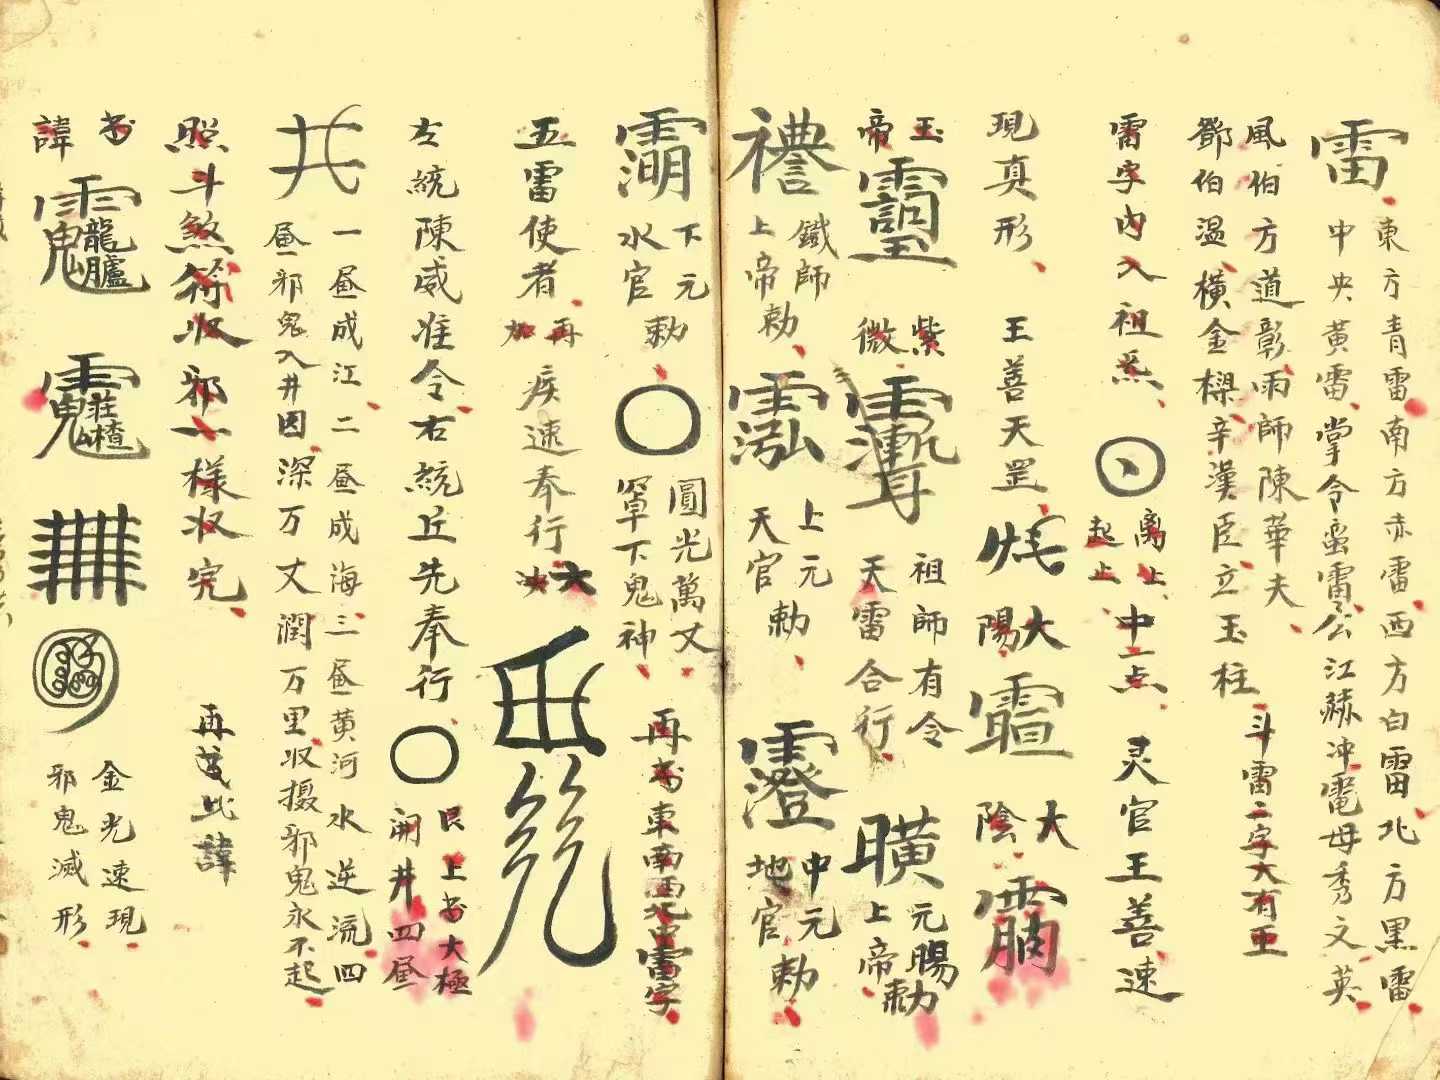 雷
東方青雷南方赤雷西方白雷北方黑雷
中央黃雷掌令蛮雷公江赫冲電母秀文英
風伯方道彰雨師陳華夫
鄧伯温横金樑辛漢臣立玉柱
斗雷二字大有王
雷字内入祖炁
离上起上
中一点
灵官王善速
現真形
王善天罡
大陽
大陰
玉帝
紫微
祖師有令
天雷合行
元賜勅
上帝
鐵師
上帝勅
上元
天官勅
中元
地官勅
下元
水官勅
圓光萬丈
罩下鬼神
再书東南西北中雷字
五雷使者
再加
疾速奉行
六
左統陳威准令右統丘先奉行
艮上书大極
開井四昼
井
一昼成江二昼成海三昼黄河水逆流四
昼邪鬼入井因深万丈润万里收摄邪鬼永不起
照斗煞符收邪一樣收完
再
此諱
书諱
金光速現
邪鬼滅形